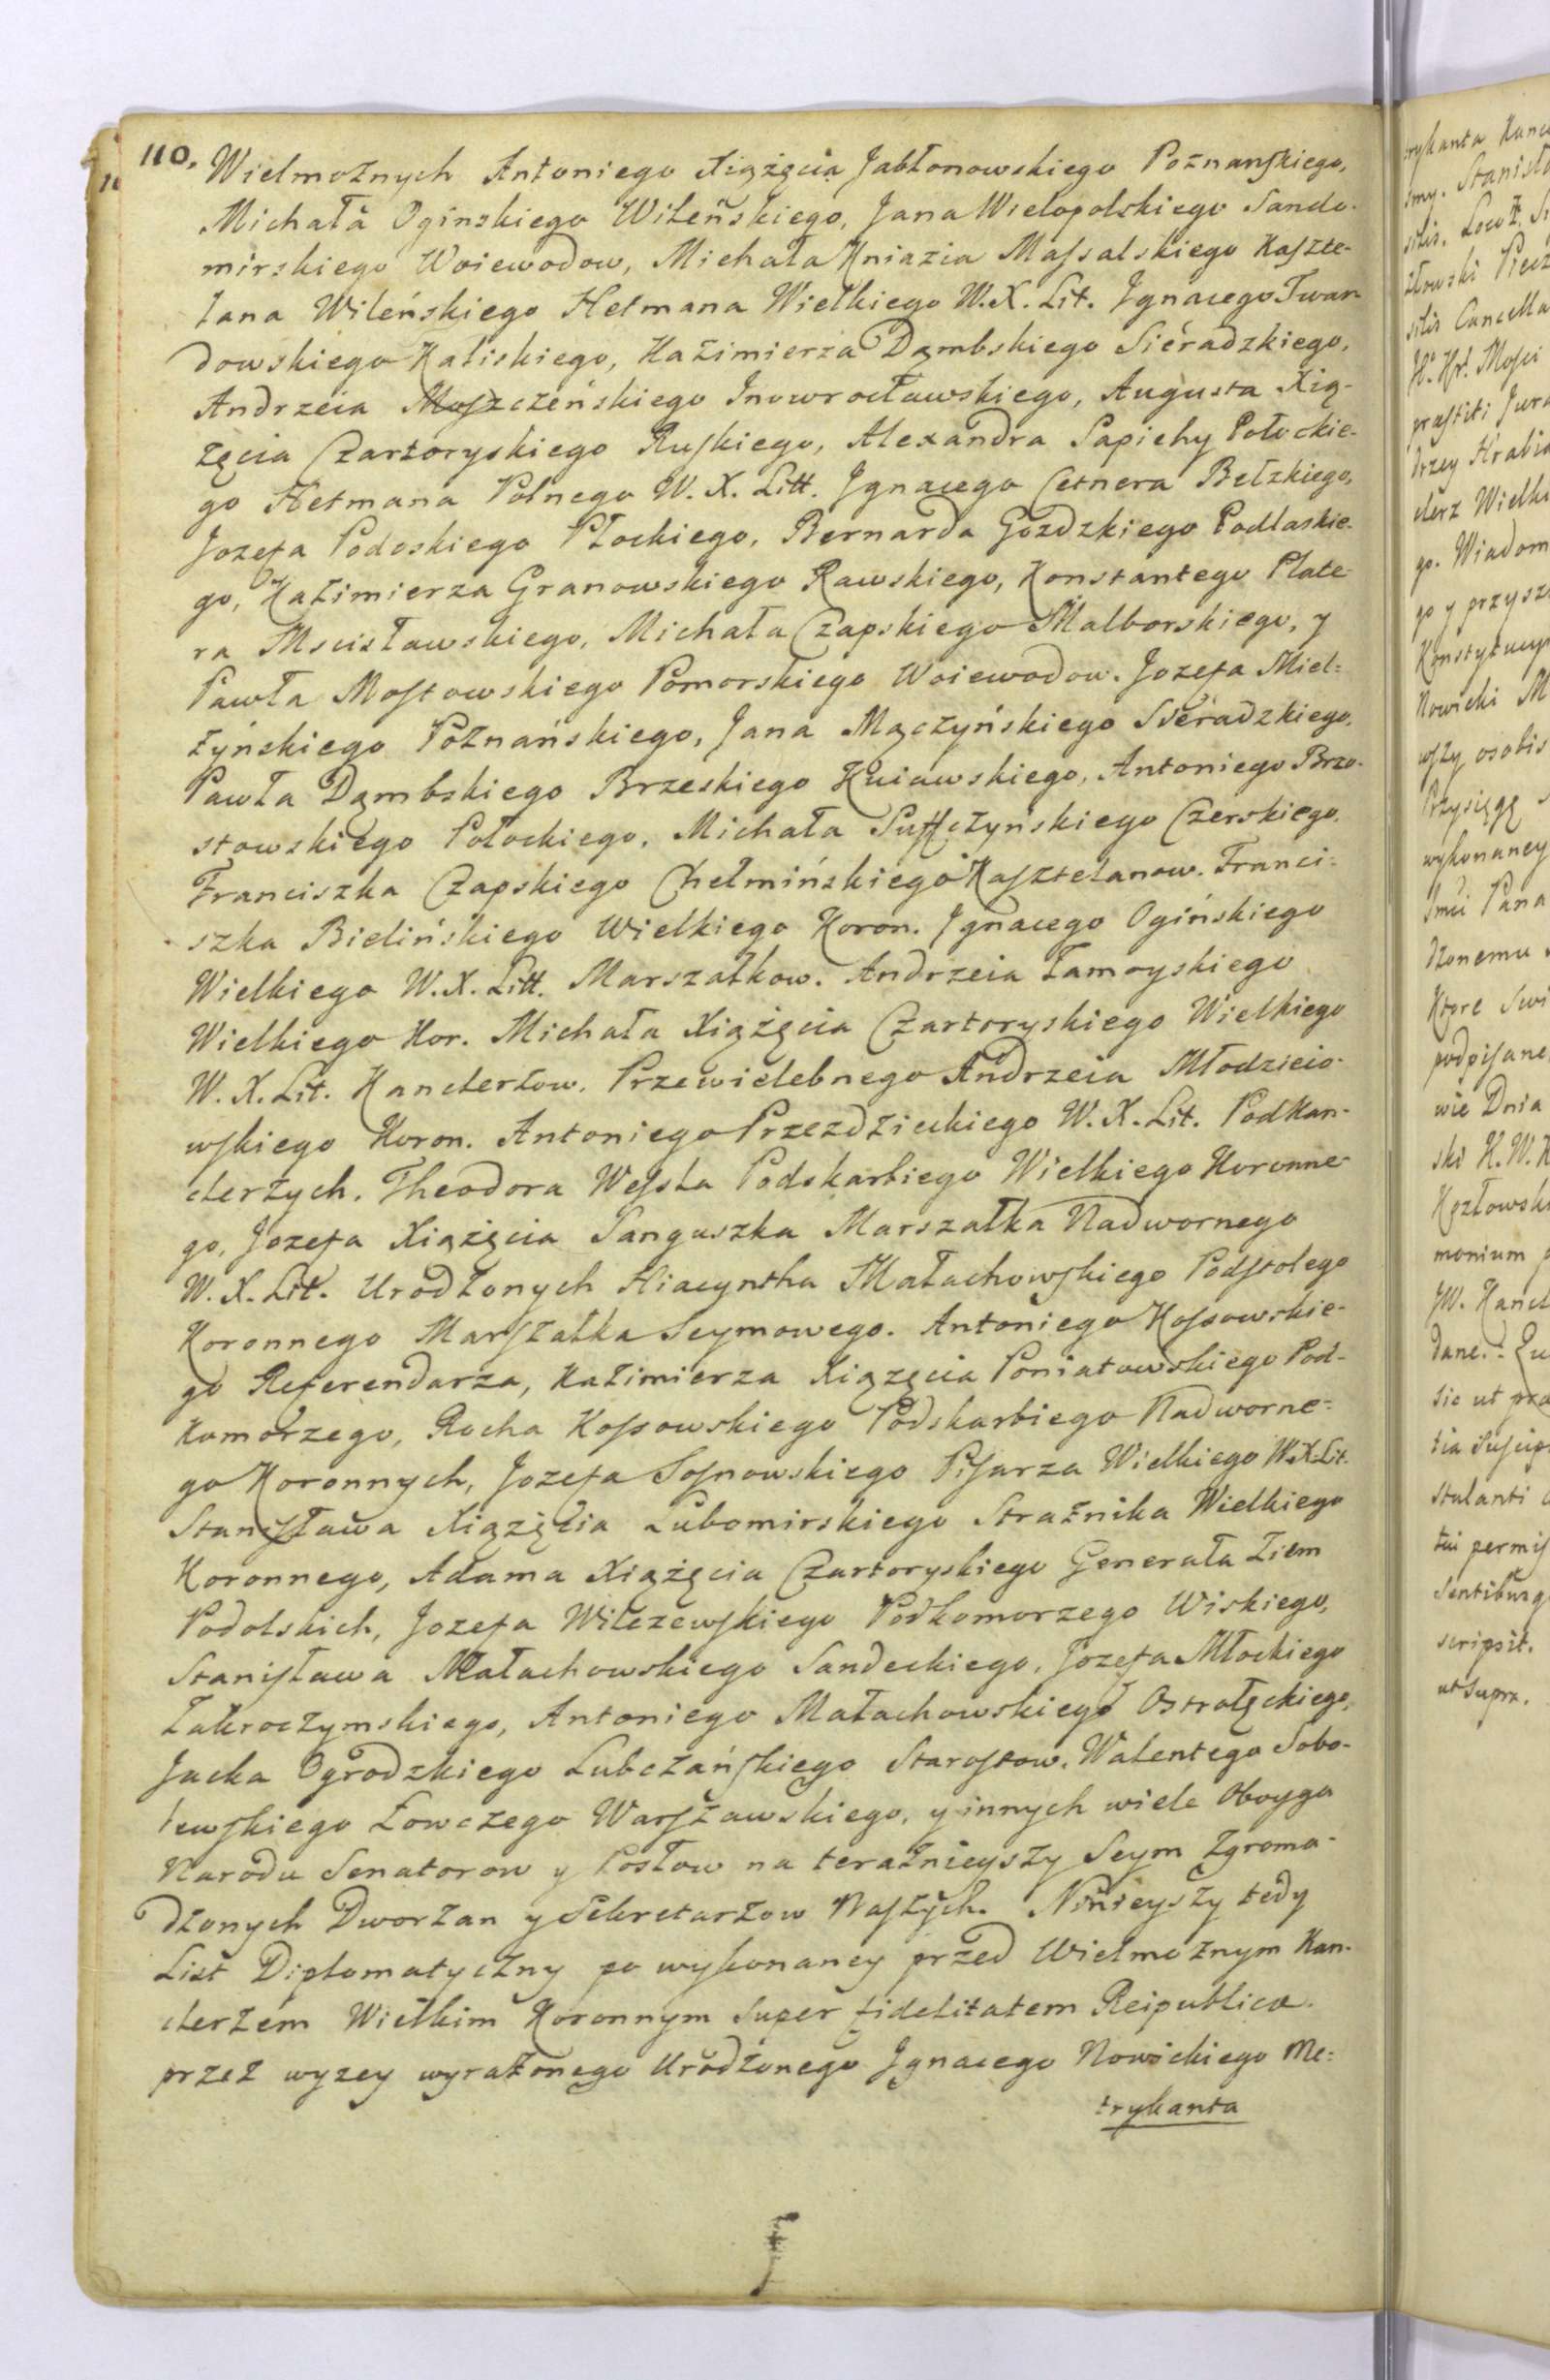 110. Wielmożnych Antoniego Xiążęcia Jabłonowskiego Poznanſkiego,
Michała Oginskiego Wileńskiego, Jana Wielopolskiego Sando-
mirskiego Woiewodow, Michała Kniazia Maſsalskiego Kaſzte-
lana Wileńskiego Hetmana Wielkiego W.X. Lit. Jgnacego Twar
dowskiego Kaliskiego, Kazimierza Dąmbskiego Siéradzkiego,
Andrzeia Moſzczeńskiego Jnowrocławskiego, Augusta Xią-
żęcia Czartoryskiego Ruſkiego, Alexandra Sapiehy Połockie-
go Hetmana Polnego W. X. Litt. Jgnacego Cetnera Bełzkiego,
Jozefa Podoskiego Płockiego, Bernarda Gozdzkiego Podlaskie-
go, Kazimierza Granowskiego Rawskiego, Konstantego Plate-
ra Mscisławskiego, Michała Czapskiego Malborskiego, y
Pawła Moſtowskiego Pomorskiego Woiewodow. Jozefa Miel=
żyńskiego Poznańskiego, Jana Mączyńskiego Siéradzkiego,
Pawła Dąmbskiego Brzeskiego Kuiawskiego, Antoniego Brzo-
stowskiego Połockiego, Michała Suffczyńskiego Czerskiego,
Franciszka Czapskiego Chełmińskiego Kaſztelanow. Franci-
szka Bielińskiego Wielkiego Koron. Jgnacego Ogińskiego
Wielkiego W.X. Litt. Marszałkow. Andrzeia Zamoyskiego
Wielkiego Kor. Michała Xiążęcia Czartoryskiego Wielkiego
W. X. Lit. Kanclerzow. Przewielebnego Andrzeia Młodzieio-
wſkiego Koron. Antoniego Przezdzieckiego W.X. Lit. PodKan-
clerzych. Theodora Weſsla Podskarbiego Wielkiego Koronne-
go, Jozefa Xiążęcia Sanguszka Marszałka Nadwornego
W. X. Lit. Urodzonych Hiacyntha Małachowſkiego Podſtolego
Koronnego Marſzałka Seymowego. Antoniego Koſsowskie-
go Referendarza, Kazimierza Xiązęcia Poniatowskiego Pod-
Komorzego, Rocha Koſsowskiego Podskarbiego Nadworne=
go Koronnych, Jozefa Soſnowskiego Piſarza Wielkiego W.X. Lit.
Staniſława Xiążęcia Lubomirskiego Strażnika Wielkiego
Koronnego, Adama Xiążęcia Czartoryskiego Generała Ziem
Podolskich, Jozefa Wilczewſkiego Podkomorzego Wiskiego,
Staniſława Małachowskiego Sandeckiego, Jozefa Młockiego
Zakroczymskiego, Antoniego Małachowskiego Ostrołęckiego,
Jacka Ogrodzkiego Lubczańſkiego Staroſtow. Walentego Sobo-
lewſkiego Łowczego Warſzawskiego, y innych wiele Oboyga
Narodu Senatorow y Posłow na teraźnieyszy Seym zgroma-
dzonych Dworzan y Sekretarzow Naſzych. Ninieyszy tedy
List Diplomatyczny po wykonaney przed Wielmożnym Kan-
clerzem Wielkim Koronnym Super fidelitatem Reipublicæ.
przez wyzey wyrażonego Urodzonego Jgnacego Nowickiego Me=
trykanta